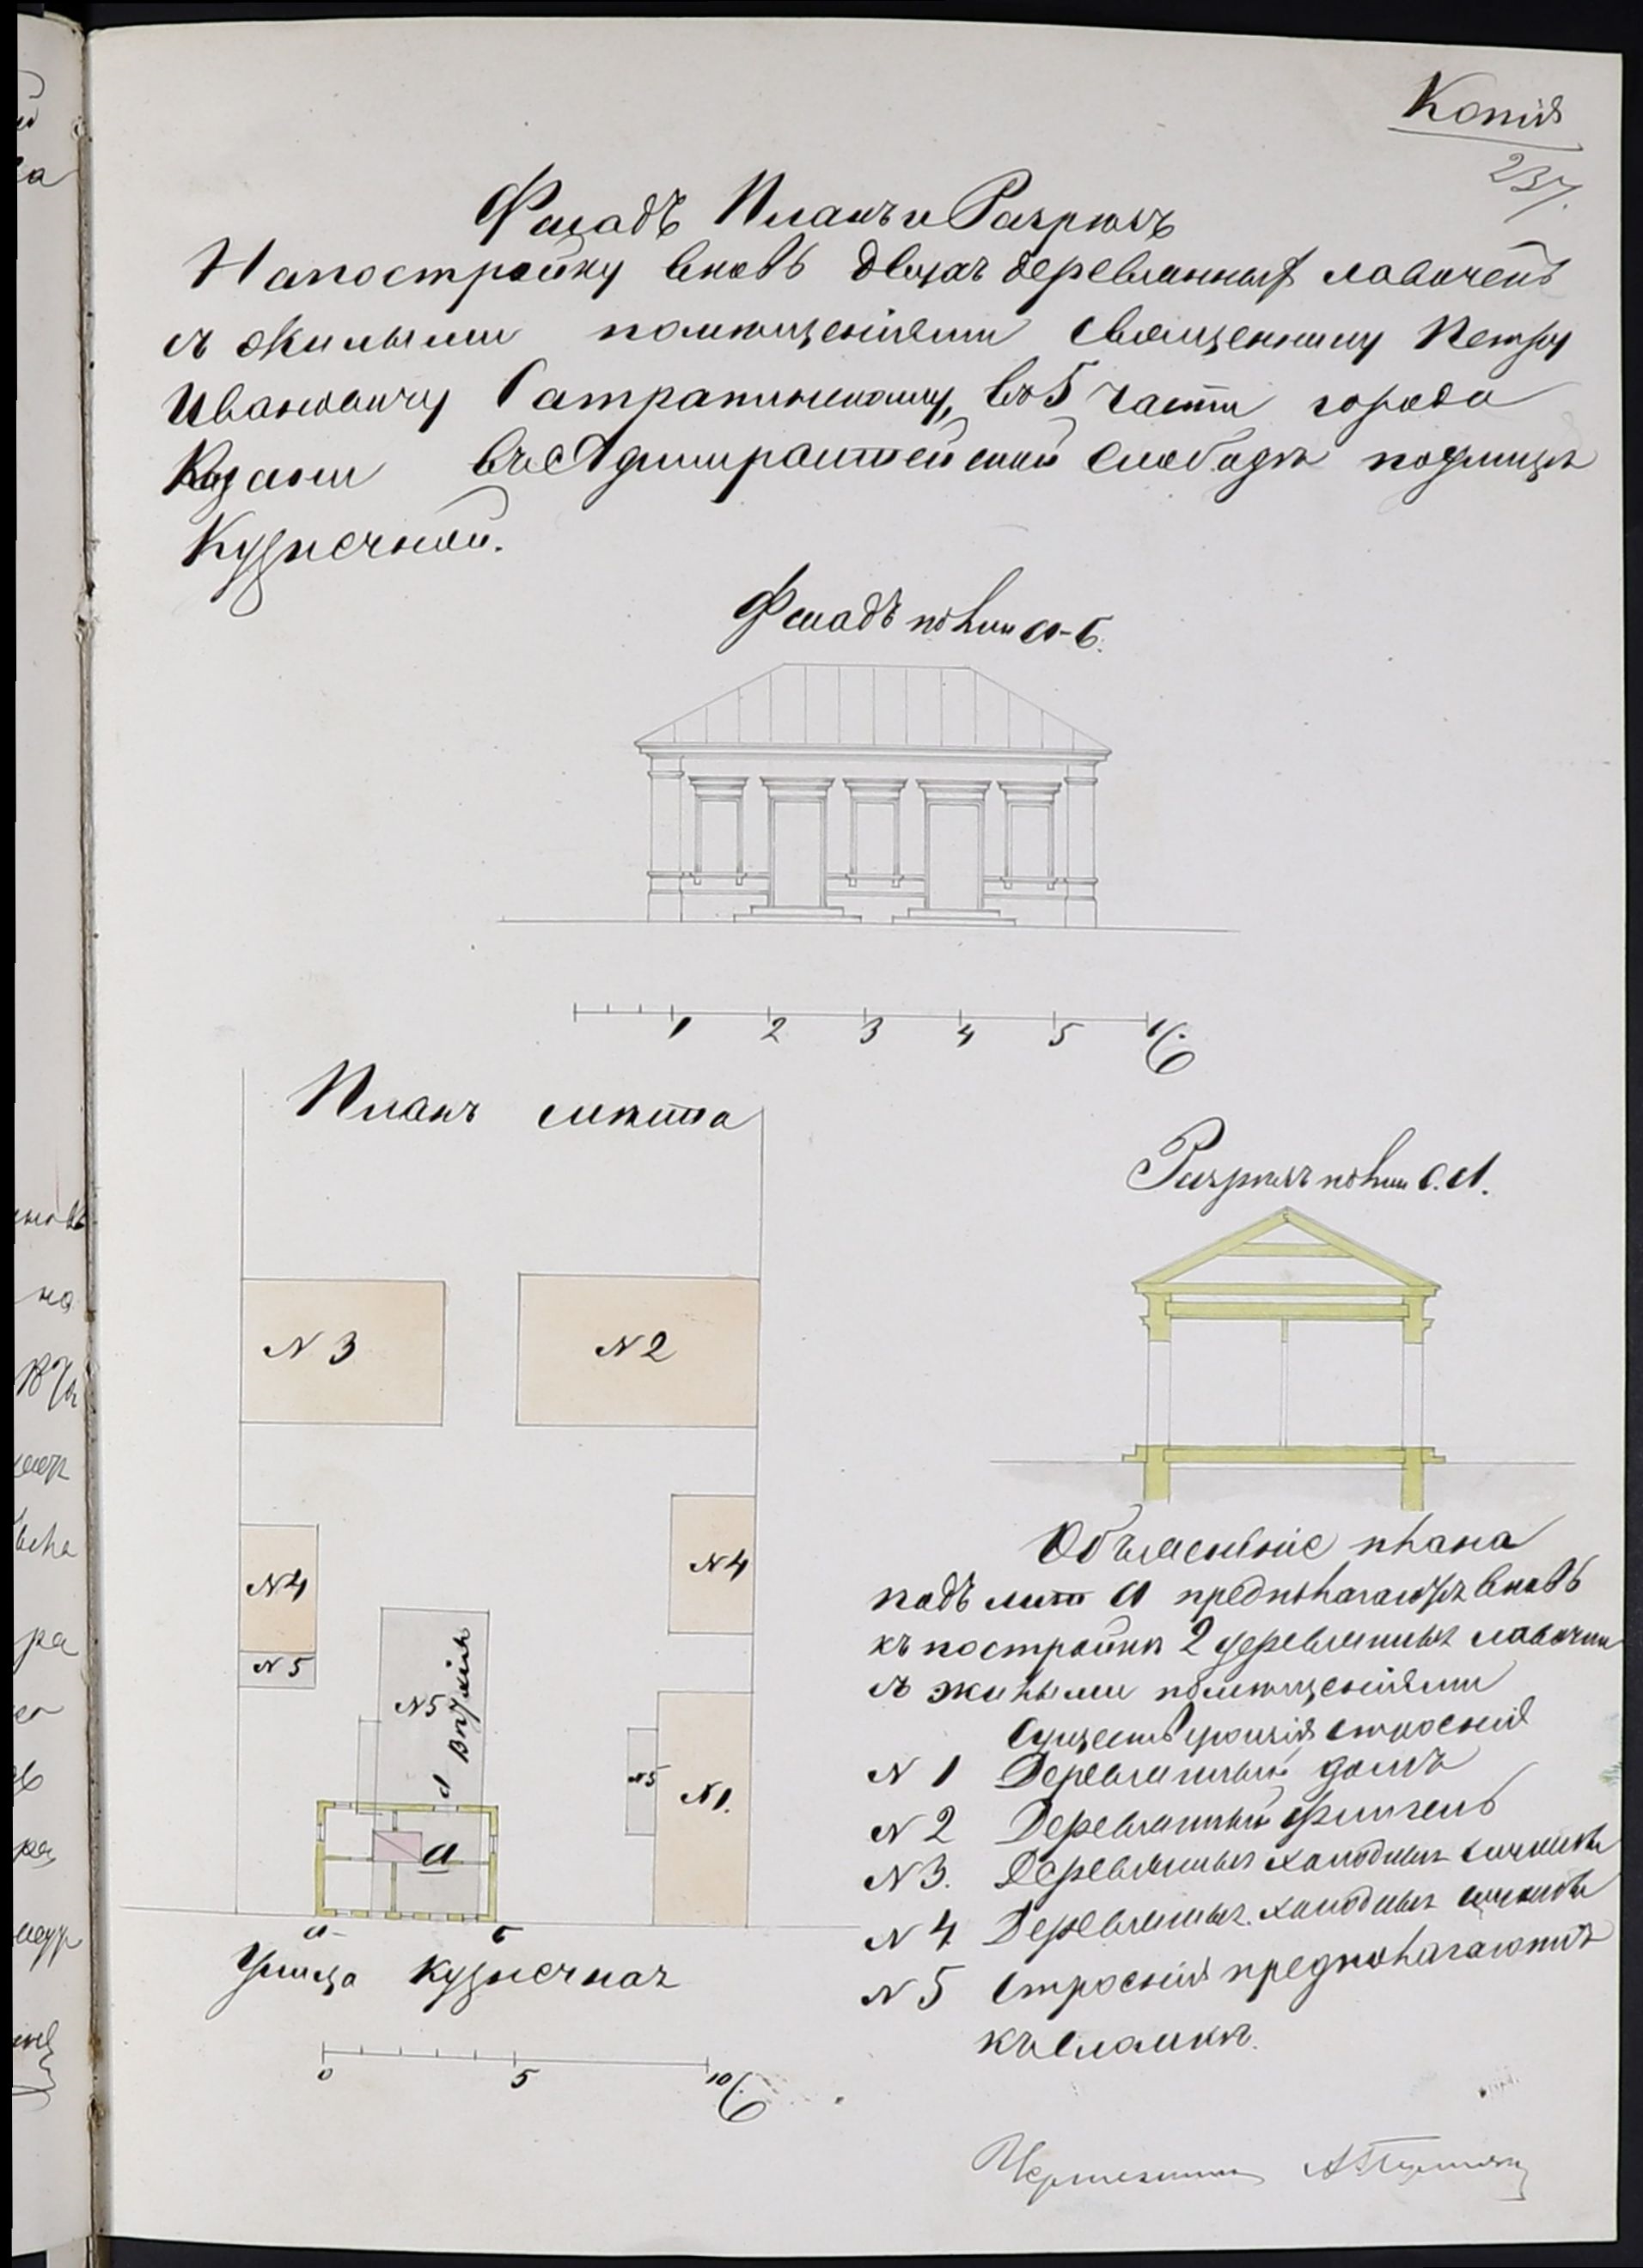 Копія
237.
Фасадъ Планъ и Разрѣзъ
На постройку вновь двухъ деревянныхъ лавочекъ
съ жилыми помѣщеніями священнику Петру
Ивановичу въ 5 части города
Казани въ Адмиралтейской слободѣ по улицѣ
Кузнечной.
Фасадъ по лин а-б.
1 2 3 4 5 6 С.
Планъ мѣста
Разрѣзъ по лин с.d.
N 3
N 2
N 4
N 4
N 5
N 5
N 5
N 1.
d
a
а
б
Улица Кузнечная
0 5 10 С.
Объясненіе плана
подъ лит а предполагаются вновь
къ постройкѣ 2 деревянныя лавочки
съ жилыми помѣщеніями
Существующія строенія
N 1 Деревянный домъ
N 2 Деревянный флигель
N 3. Деревянныя холодныя службы
N 4 Деревянныя холодныя службы
N 5 Строенія предполагаются
къ сломкѣ.